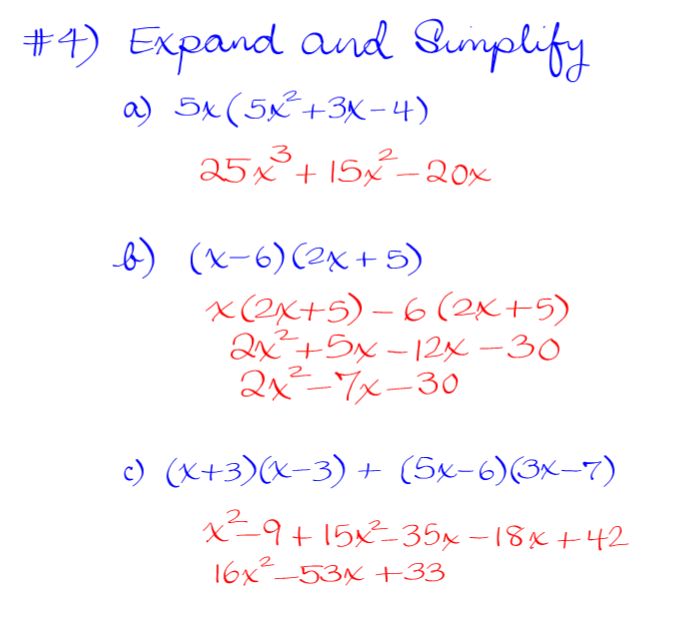 #4) Expand and Simplify
a) 5x(5x²+3x-4)
25x³+15x²-20x
b) (x-6)(2x+5)
x(2x+5)-6(2x+5)
2x²+5x-12x-30
2x²-7x-30
c) (x+3)(x-3) + (5x-6)(3x-7)
x²-9+15x²-35x-18x+42
16x²-53x+33